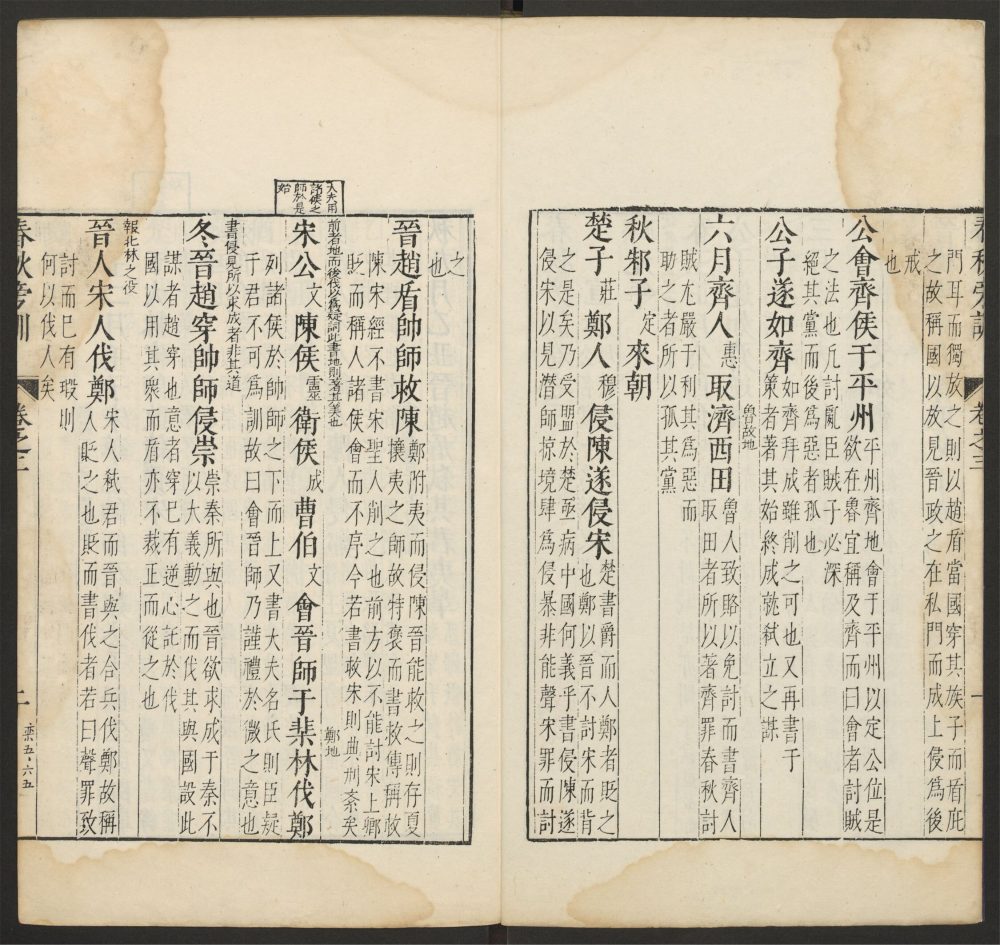 門耳而獨放之則以趙盾當國穿其族子而盾庇
之故稱國以放見晉政之在私門而成上侵為後
戒
也
公會齊侯于平州
平州齊地會于平州以定公位是
欲在魯宜稱及齊而曰會者討賊
之法也凡討亂臣賊子必深
絕其黨而後為惡者孤也
公子遂如齊
如齊拜成雖削之可也又再書于
策者著其始終成就弒立之謀
六月齊人
惠
取濟西田
魯故地
魯人致賂以免討而書齊人
取田者所以著齊罪春秋討
賊尤嚴于利其為惡而
助之者所以孤其黨
秋邾子
定
來朝
楚子
莊
鄭人
穆
侵陳遂侵宋
楚書爵而人鄭者貶之
也鄭以晉不討宋而背
之是矣乃受盟於楚亟病中國何義乎書侵陳遂
侵宋以見潛師掠境肆為侵暴非能聲宋罪而討
之
也
晉趙盾帥師救陳
鄭附夷而侵陳晉能救之則存夏
攘夷之師故特褒而書救傳稱救
陳宋經不書宋聖人削之也前方以不能討宋上卿
貶而稱人諸侯會而不序今若書救宋則典刑紊矣
大夫用
諸侯之
師於是
始
前者地而後伐以為疑詞此書地則著其美也
宋公
文
陳侯
靈
衛侯
成
曹伯
文
會晉師于棐林伐鄭
鄭地
列諸侯於師師之下而上又書大夫名氏則臣疑
于君不可為訓故曰會晉師乃謹禮於微之意也
書侵見所以求成者非其道
冬晉趙穿帥師侵崇
崇秦所與也晉欲求成于秦不
以大義動之而伐其與國設此
謀者趙穿也意者穿已有逆心託於伐
國以用其眾而盾亦不裁正而從之也
報北林之役
晉人宋人伐鄭
宋人弒君而晉與之合兵伐鄭故稱
人貶之也貶而書伐者若曰聲罪致
討而已有瑕則
何以伐人矣
卷之三